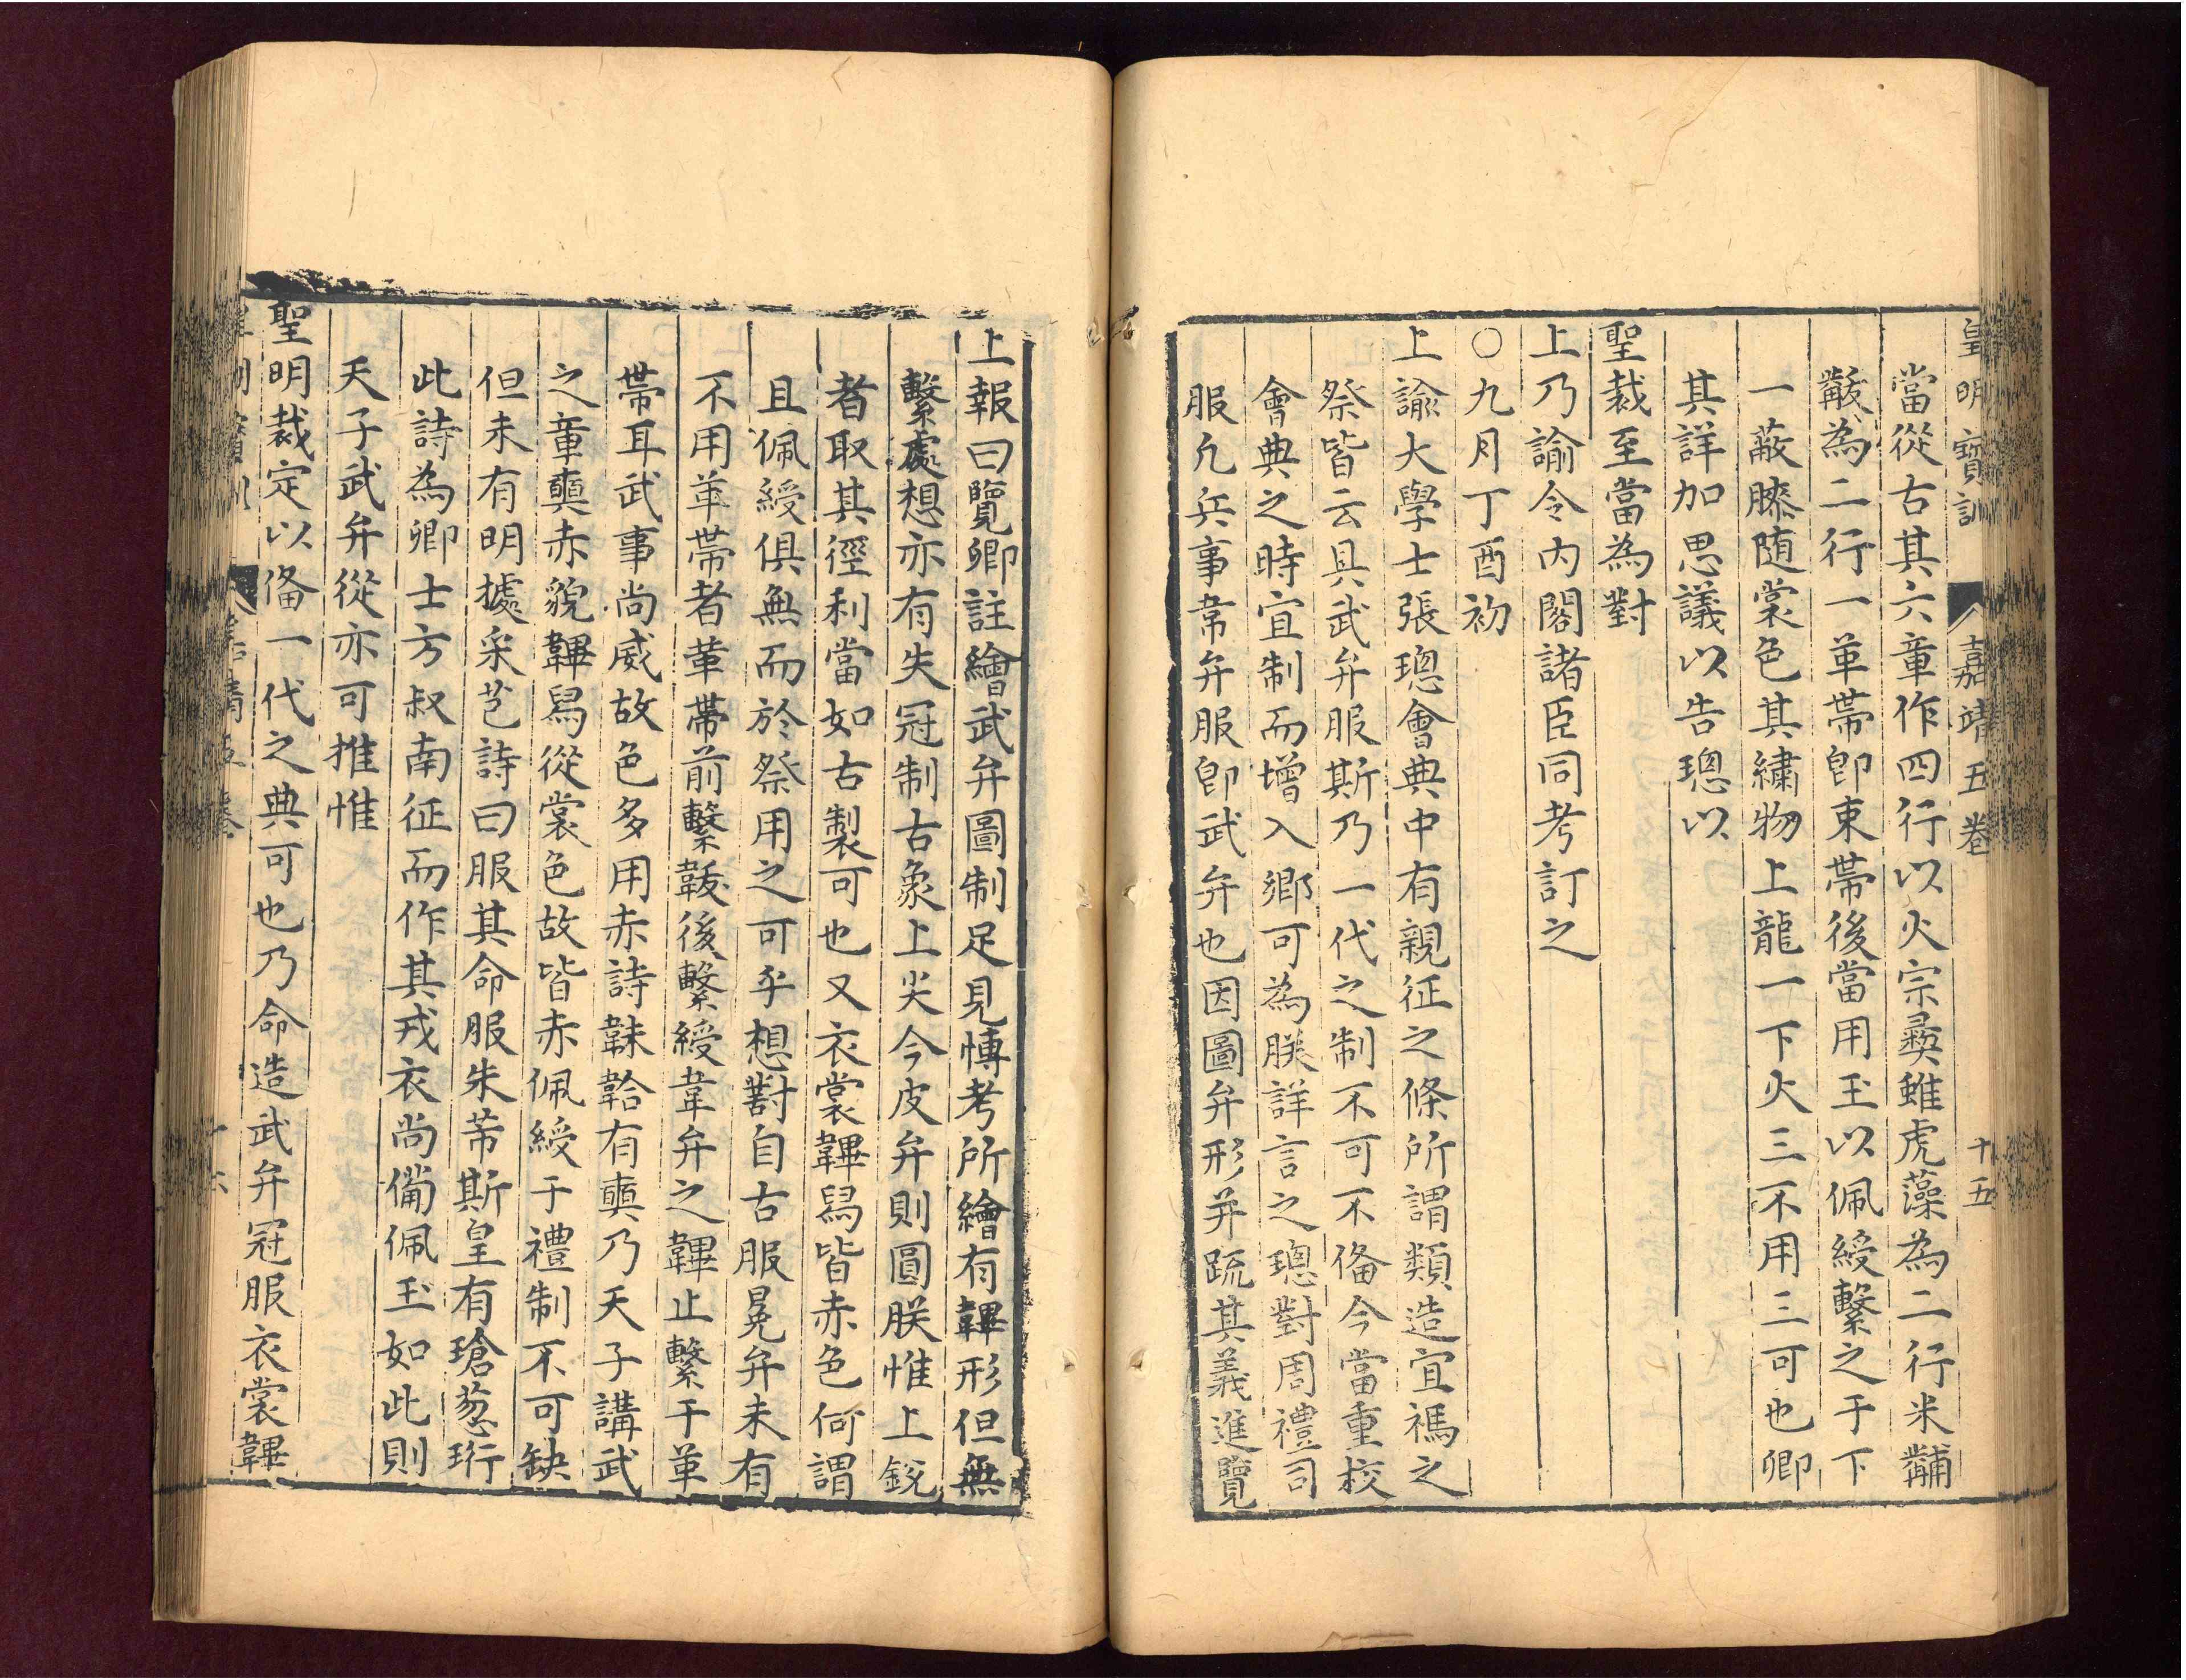 皇明寶訓　嘉靖五卷　十五
當從古其六章作四行以火宗彝蜼虎藻為二行米黼
黻為二行一革帶即束帶後當用玉以佩綬繫之于下
一蔽膝随裳色其繡物上龍一下火三不用三可也卿
其詳加思議以告璁以
聖裁至當為對
上乃諭令内閣諸臣同考訂之
○九月丁酉初
上諭大學士張璁會典中有親征之條所謂類造宜禡之
祭皆云具武弁服斯乃一代之制不可不俻今當重校
會典之時宜制而增入卿可為朕詳言之璁對周禮司
服凡兵事韋弁服卽武弁也因圖弁形并疏其義進覽
上報曰覽卿註繪武弁圖制足見博考所繪有韠形但無
繫處想亦有失冠制古象上尖今皮弁則圓朕惟上銳
者取其徑利當如古製可也又衣裳韠舄皆赤色何謂
且佩綬俱無而於祭用之可乎想對自古服冕弁未有
不用革帶者革帶前繫韍後繫綬韋弁之韠止繫于革
帶耳武事尚威故色多用赤詩韎韐有奭乃天子講武
之章奭赤貌韠舄從裳色故皆赤佩綬于禮制不可缺
但未有明據采芑詩曰服其命服朱芾斯皇有瑲葱珩
此詩為卿士方叔南征而作其戎衣尚備佩玉如此則
天子武弁從亦可推惟
聖明裁定以俻一代之典可也乃命造武弁冠服衣裳韠